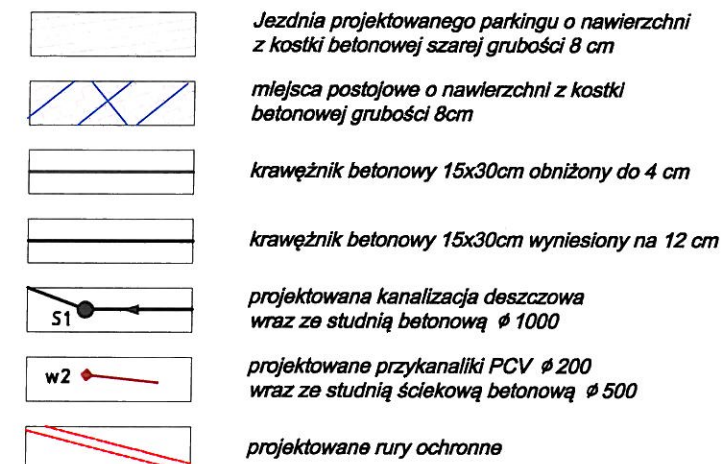 Jezdnia projektowanego parkingu o nawierzchni
z kostki betonowej szarej grubości 8 cm
miejsca postojowe o nawierzchni z kostki
betonowej grubości 8cm
krawężnik betonowy 15x30cm obniżony do 4 cm
krawężnik betonowy 15x30cm wyniesiony na 12 cm
S1
projektowana kanalizacja deszczowa
wraz ze studnią betonową ⌀ 1000
w2
projektowane przykanaliki PCV ⌀ 200
wraz ze studnią ściekową betonową ⌀ 500
projektowane rury ochronne